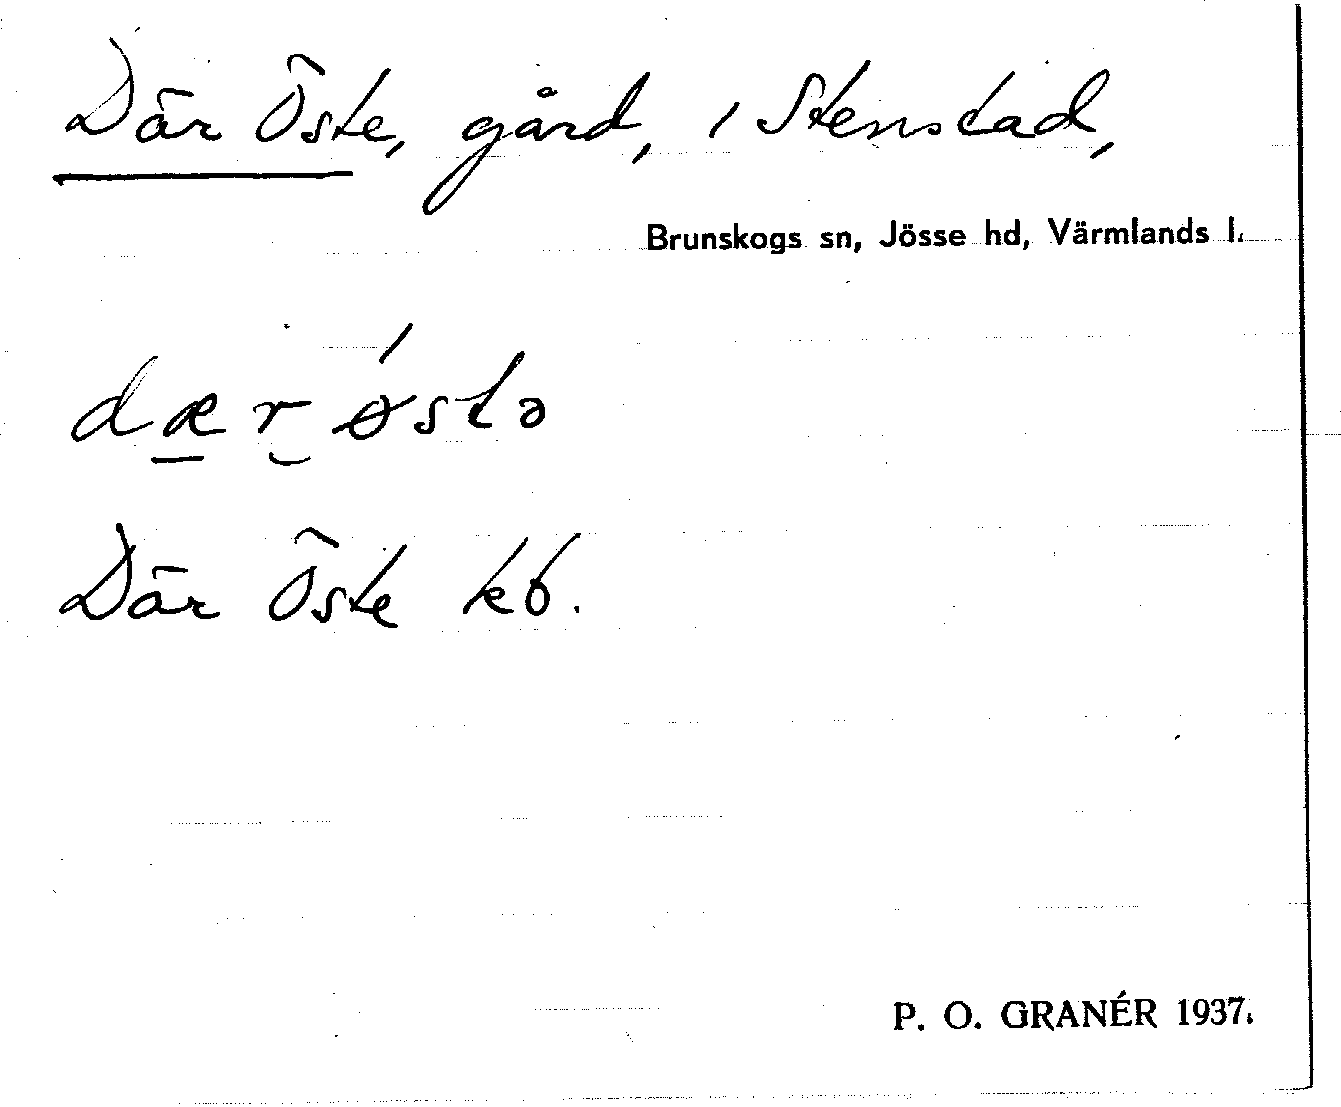 Där Öste, gård, i Stenstad,
Brunskogs sn, Jösse hd, Värmlands l.
dæ̱r̮ ǿstə
Där Öste kb.
P. O. GRANÉR 1937.